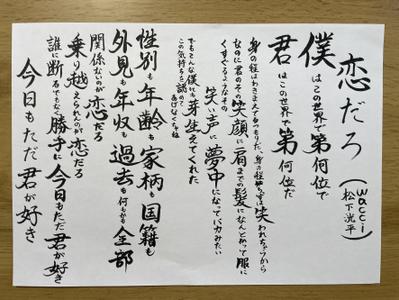 恋だろ
(wacci
松下洸平)
僕はこの世界で第何位で
君はこの世界で第何位だ
身の程はわきまえるつもりだ、身の程知らずは笑われちゃうから
なのに君のその笑顔に肩までの髪になんとあって服に
くすぐるようなその
笑い声に夢中になってバカみたい
でもこんな僕にも芽生えてくれた
この気持ちを認めてあげなくちゃね
性別も年齢も家柄も国籍も
外見も年収も過去も何もかも全部
関係ないのが恋だろ
乗り越えられるのが恋だろ
誰に断るでもなく勝手に今日もただ君が好き
今日もただ君が好き